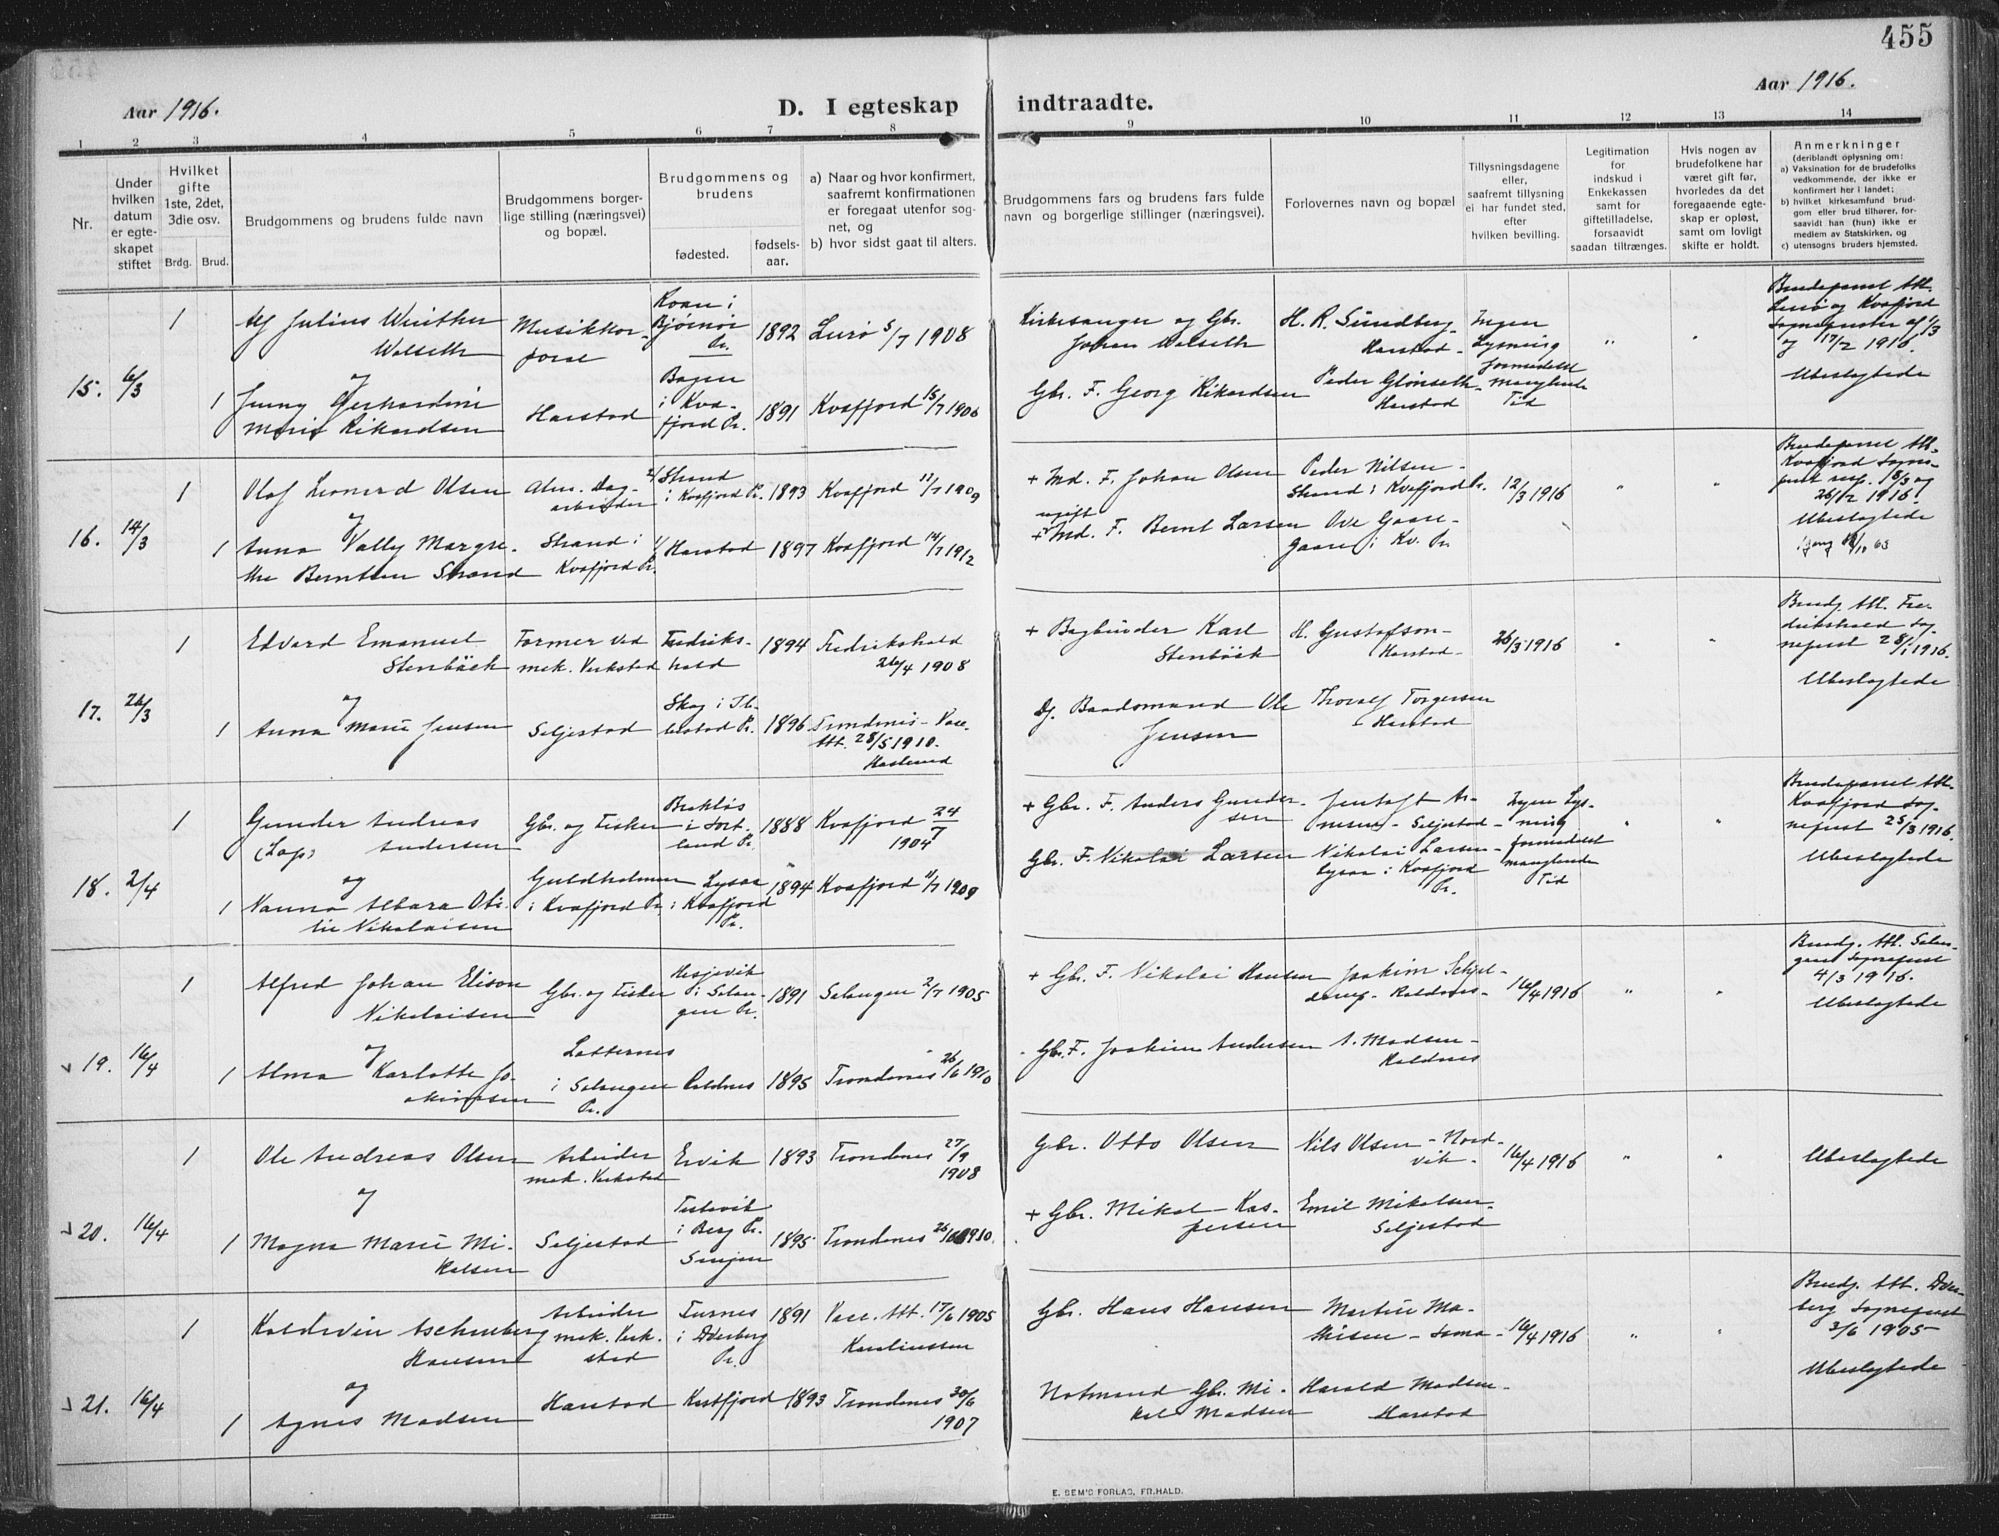 455
Aar 1916.
Aar 1916.
D. I egteskap indtraadte.
1 2 3 4 5 6 7 8 9 10 11 12 13 14
Nr.
Under hvilken datum er egteskapet stiftet
Hvilket gifte 1ste, 2det, 3die osv.
Brdg. Brud.
Brudgommens og brudens fulde navn
Brudgommens borgerlige stilling (næringsvei) og bopæl.
Brudgommens og brudens
fødested.
fødselsaar.
a) Naar og hvor konfirmert, saafremt konfirmationen er foregaat utenfor sognet, og
b) hvor sidst gaat til alters.
Brudgommens fars og brudens fars fulde navn og borgerlige stillinger (næringsvei).
Forlovernes navn og bopæl
Tillysningsdagene eller, saafremt tillysning ei har fundet sted, efter hvilken bevilling.
Legitimation for indskud i Enkekassen samt for giftetilladelse, forsaavidt saadan tiltrænges.
Hvis nogen av brudefolkene har været gift før, hvorledes da det foregaaende egteskap er opløst, samt om lovligt skifte er holdt.
Anmerkninger
(deriblandt oplysning om:
a) Vaksination for de brudefolks vedkommende, der ikke er konfirmert her i landet;
b) hvilket kirkesamfund brudgom eller brud tilhører, forsaavidt han (hun) ikke er medlem av Statskirken, og
c) utensogns bruders hjemsted.
15. 6/3
1 Alf Julius Winther Walseth
Musikkorporal
Roan i Bjørnør Pr.
1892
Lurø 5/7 1908
Kirkesanger og Gbr. Johan Walseth
H. R. Sundberg Harstad
Ingen Lysning formedelst manglende Tid
"
Brudeparret Att. Lurø og Kvæfjord Sogneprester af 1/3 og 17/2 1916.
Ubeslegtede
og
1 Jenny Gerhardine Marie Rikardsen
Harstad
Bogen i Kvæfjord Pr.
1891
Kvæfjord 15/7 1906
Gbr. F. Georg Rikardsen
Peder Glönseth Harstad
16. 14/3
1 Olaf Leonard Olsen
Alm. Dagarbeider
Strand i Kvæfjord Pr.
1893
Kvæfjord 11/7 1909
+ Md. F. Johan Olsen
Peder Nilsen Strand i Kvæfjord Pr.
12/3 1916
"
Brudeparret Att. Kvæfjord Sogneprest resp. 18/3 og 26/12 1915.
Ubeslegtede
og
1 Anna Vally Margrethe Berntsen Strand
Strand i Kvæfjord Pr.
Harstad
1897
Kvæfjord 14/7 1912
ugift
+ Md. F. Bernt Larsen
Ove Gaare Gaare i Kv. Pr.
17. 26/3
1 Edvard Emanuel Stenbäck
Former ved mek. Verksted
Fredrikshald
1894
Fredrikshald 26/4 1908
+ Bogbinder Karl Stenbäck
H. Gustafson Harstad
26/3 1916
Brudg. Att. Fredrikshald Sogneprest 28/1 1916.
Ubeslegtede
og
1 Anna Marie Jensen
Seljestad
Skog i Ibbestad Pr.
1896
Trondenes - Vacc. Att. 28/5 1910. Haslund
Dj. Baadsmand Ole Jensen
Thoralf Torgersen Harstad
18. 2/4
1 Gunder Andreas Andersen
(Lap)
Gbr. og Fisker
Brokløs i Sortland Pr.
1888
Kvæfjord 24/7 1904
+ Gbr. F. Anders Gundersen
Jentoft Arnesen - Seljestad
Ingen Lysning formedelst manglende Tid
"
Brudeparret Att. Kvæfjord Sogneprest 25/3 1916.
Ubeslegtede
og
1 Nanna Albara Otilie Nikolaisen
Guldholmen i Kvæfjord Pr.
Lysaa i Kvæfjord Pr.
1894
Kvæfjord 11/7 1909
Gbr. F. Nikolai Larsen
Nikolai Larsen Lysaa i Kvæfjord Pr.
19. 16/4
1 Alfred Johan Elison Nikolaisen
Gbr. og Fisker
Hesjevik i Salangen Pr.
1891
Salangen 2/7 1905
+ Gbr. F. Nikolai Hansen
Joakim Schjelderup - Kaldnes
16/4 1916
"
Brudg. Att. Salangen Sogneprest 4/3 1916.
Ubeslegtede
og
1 Alma Karlotte Joakimsen
Lotternes i Salangen Pr.
Kaldnes
1895
Trondenes 26/6 1910
Gbr. F. Joakim Andersen
A. Madsen Kaldnes
20. 16/4
1 Ole Andreas Olsen
Arbeider mek. Verksted
Ervik
1893
Trondenes 27/9 1908
Gbr. Otto Olsen
Nils Olsen - Nordvik
16/4 1916
"
Ubeslegtede
og
1 Magna Marie Mikalsen
Seljestad
Finsevik i Berg Pr. Senjen
1895
Trondenes 26/6 1910
+ Gbr. Mikal Kaspersen
Emil Mikalsen Seljestad
21. 16/4
1 Kaldevin Aschenberg Hansen
Arbeider mek. Verksted
Furnes i Dverberg Pr.
1891
Vacc. Att. 17/6 1905 Karoliussen
Gbr. Hans Hansen
Martin Mathisen - Sama
16/4 1916
"
Brudg. Att. Dverberg Sogneprest 3/6 1905
Ubeslegtede
og
1 Agnes Madsen
Harstad
Kastfjord
1893
Trondenes 30/6 1907
Notmand Gbr. Mikal Madsen
Harald Madsen Harstad
E. SEM'S FORLAG, FR.HALD.